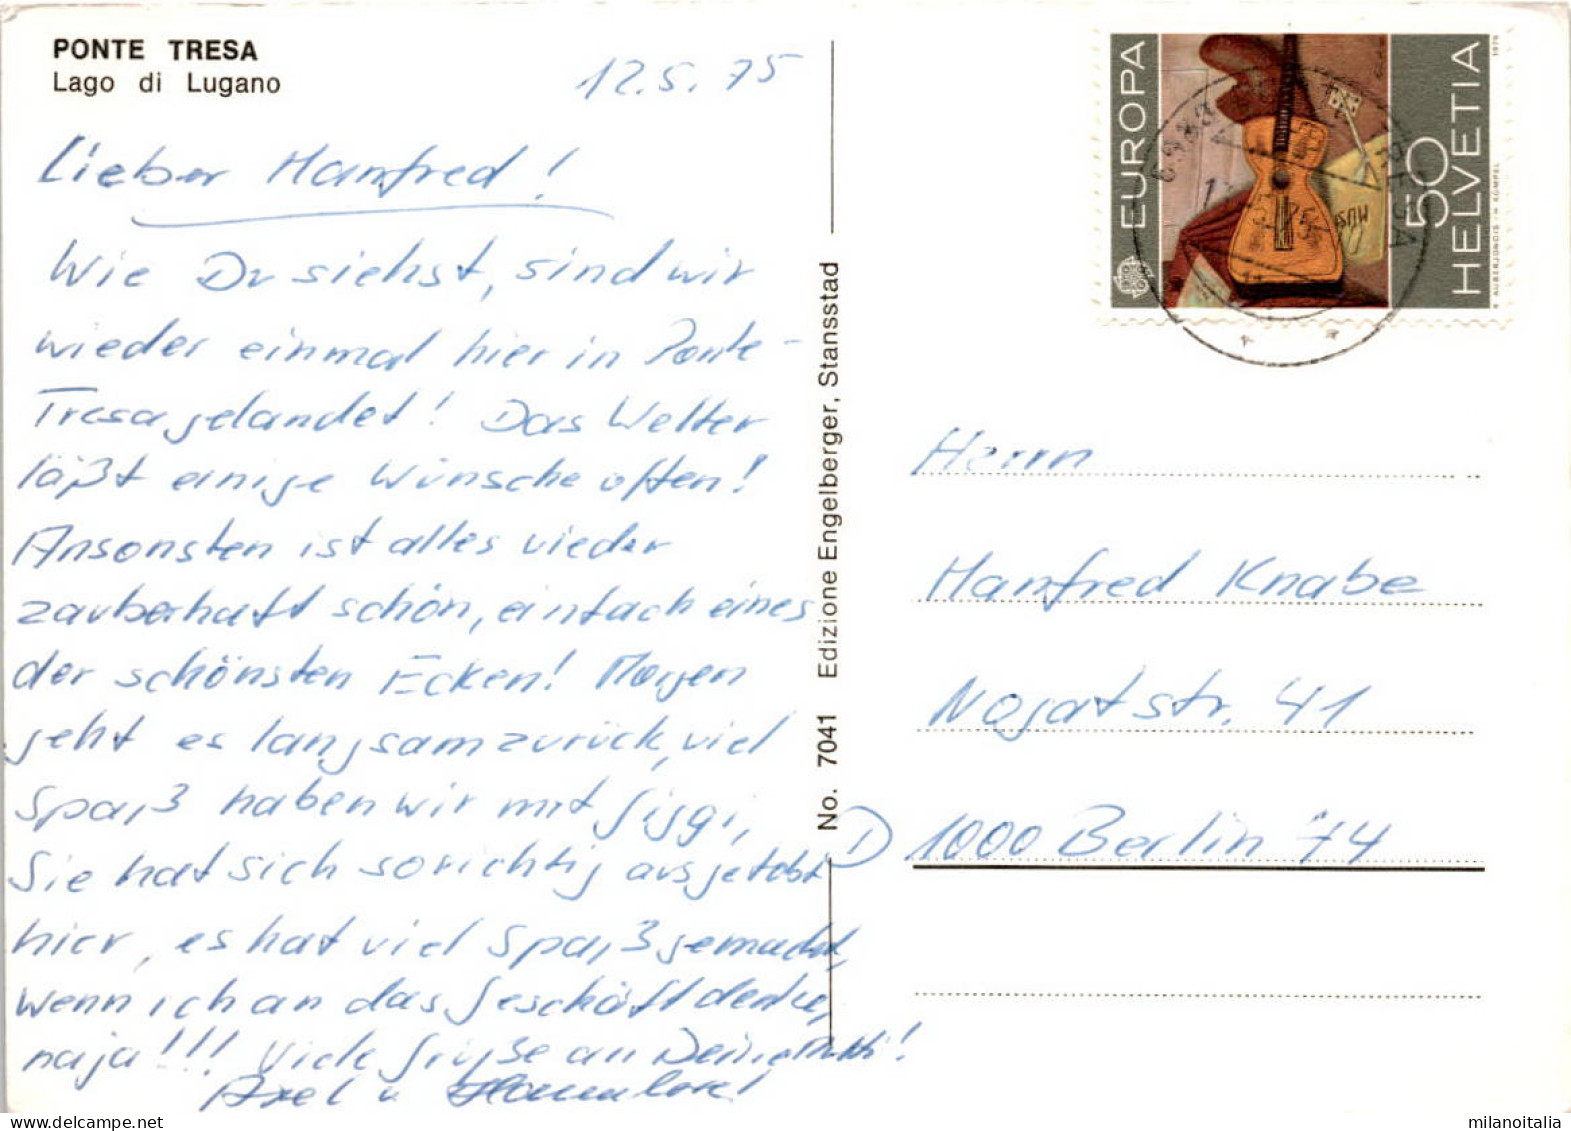 PONTE TRESA
Lago di Lugano
12.5.75
Lieber Manfred!
Wie Du siehst, sind wir
wieder einmal hier in Ponte-
Tresa gelandet! Das Wetter
läßt einige Wünsche offen!
Ansonsten ist alles wieder
zauberhaft schön, einfach eines
der schönsten Ecken! Morgen
geht es langsam zurück, viel
Spaß haben wir mit Siggi,
Sie hat sich so richtig ausgetobt
hier, es hat viel Spaß gemacht,
wenn ich an das Geschäft denke,
naja!!! Viele Grüße an Deine Mutti!
Axel u.
No. 7041 Edizione Engelberger, Stansstad
EUROPA
50
HELVETIA
1975
Herrn
Manfred Knabe
Nogatstr. 41
D 1000 Berlin 44
milanoitalia